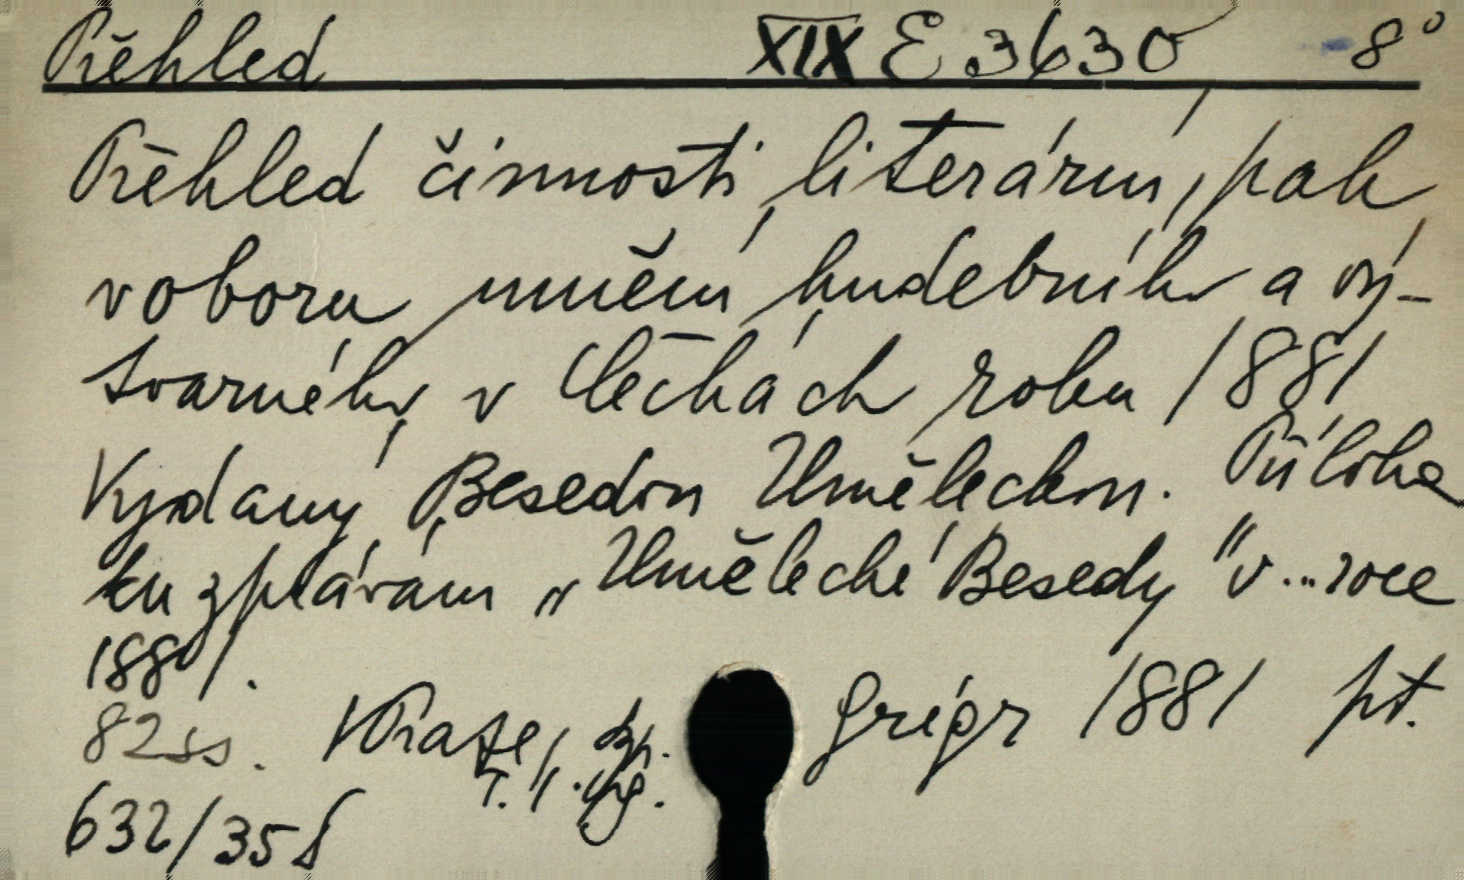 Přehled XIX E 3630 8°
Přehled činnosti literární, pak
v oboru umění hudebního a vý-
tvarného v Čechách roku 1881
Vydaný Besedou Uměleckou. Příloha
ku zprávám „Umělecké Besedy" v... roce
1881.
82 ss. V Praze, Grégr 1881 př.
632/35